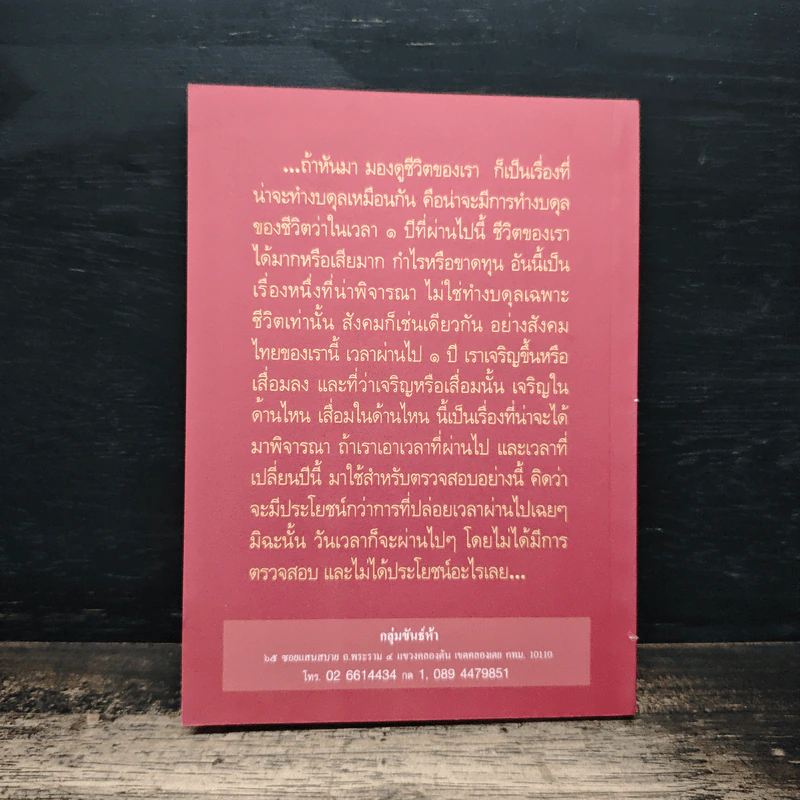 ...ถ้าหันมา มองดูชีวิตของเรา ก็เป็นเรื่องที่
น่าจะทำงบดุลเหมือนกัน คือน่าจะมีการทำงบดุล
ของชีวิตว่าในเวลา ๑ ปีที่ผ่านไปนี้ ชีวิตของเรา
ได้มากหรือเสียมาก กำไรหรือขาดทุน อันนี้เป็น
เรื่องหนึ่งที่น่าพิจารณา ไม่ใช่ทำงบดุลเฉพาะ
ชีวิตเท่านั้น สังคมก็เช่นเดียวกัน อย่างสังคม
ไทยของเรานี้ เวลาผ่านไป ๑ ปี เราเจริญขึ้นหรือ
เสื่อมลง และที่ว่าเจริญหรือเสื่อมนั้น เจริญใน
ด้านไหน เสื่อมในด้านไหน นี้เป็นเรื่องที่น่าจะได้
มาพิจารณา ถ้าเราเอาเวลาที่ผ่านไป และเวลาที่
เปลี่ยนปีนี้ มาใช้สำหรับตรวจสอบอย่างนี้ คิดว่า
จะมีประโยชน์กว่าการที่ปล่อยเวลาผ่านไปเฉยๆ
มิฉะนั้น วันเวลาก็จะผ่านไปๆ โดยไม่ได้มีการ
ตรวจสอบ และไม่ได้ประโยชน์อะไรเลย...
กลุ่มขันธ์ห้า
๖๕ ซอยแสนสบาย ถ.พระราม ๔ แขวงคลองตัน เขตคลองเตย กทม. 10110
โทร. 02 6614434 กด 1, 089 4479851